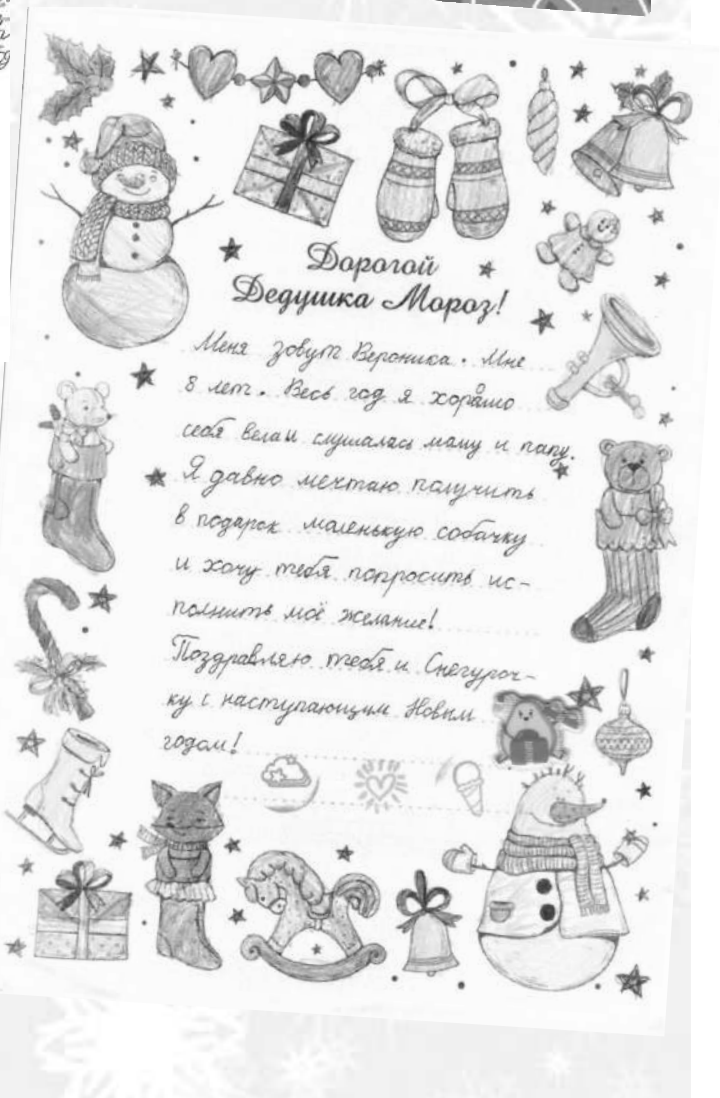 Дорогой
Дедушка Мороз!
Меня зовут Вероника. Мне
8 лет. Весь год я хорошо
себя вела и слушалась маму и папу.
Я давно мечтаю получить
в подарок маленькую собачку
и хочу тебя попросить ис-
полнить моё желание!
Поздравляю тебя и Снегуроч-
ку с наступающим Новым
годом!